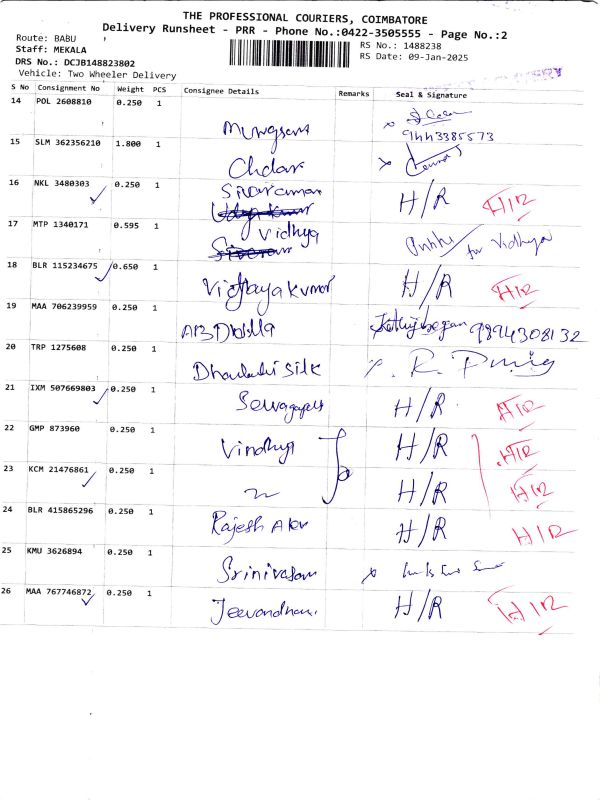 THE PROFESSIONAL COURIERS, COIMBATORE
Delivery Runsheet - PRR - Phone No.:0422-3505555 - Page No.:2
Route: BABU
Staff: MEKALA
DRS No.: DCJB148823802
Vehicle: Two Wheeler Delivery
RS No.: 1488238
RS Date: 09-Jan-2025
S No Consignment No Weight PCS Consignee Details Remarks Seal & Signature
14 POL 2608810 0.250 1
9443385573
15 SLM 362356210 1.800 1 Chdar
16 NKL 3480303 0.250 1 Sivaraman H/R H/R
17 MTP 1340171 0.595 1 Vidhya for Vidhya
18 BLR 115234675 0.650 1 Vijayakumar H/R H/R
19 MAA 706239959 0.250 1 9894308132
20 TRP 1275608 0.250 1 Silk
21 IXM 507669803 0.250 1 H/R H/R
22 GMP 873960 0.250 1 Vindhya H/R H/R
23 KCM 21476861 0.250 1 H/R H/R
24 BLR 415865296 0.250 1 Rajesh H/R H/R
25 KMU 3626894 0.250 1 Srinivasan
26 MAA 767746872 0.250 1 Jeevandham H/R H/R